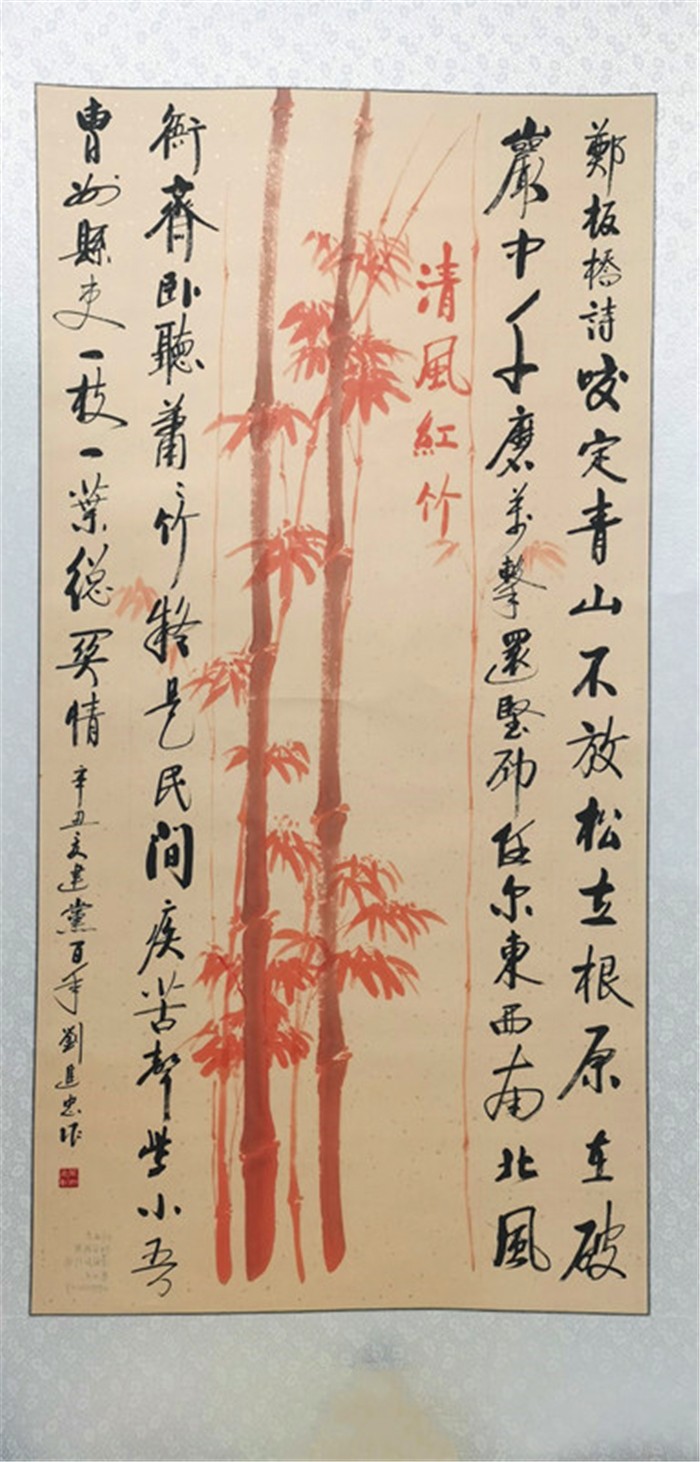 鄭板橋詩咬定青山不放松立根原在破
巖中千磨萬擊還堅劲任尔東西南北風
清風紅竹
衙齋卧聽蕭〻竹疑是民間疾苦聲些小吾
曹州縣吏一枝一葉總関情
辛丑夏建黨百年劉進忠作